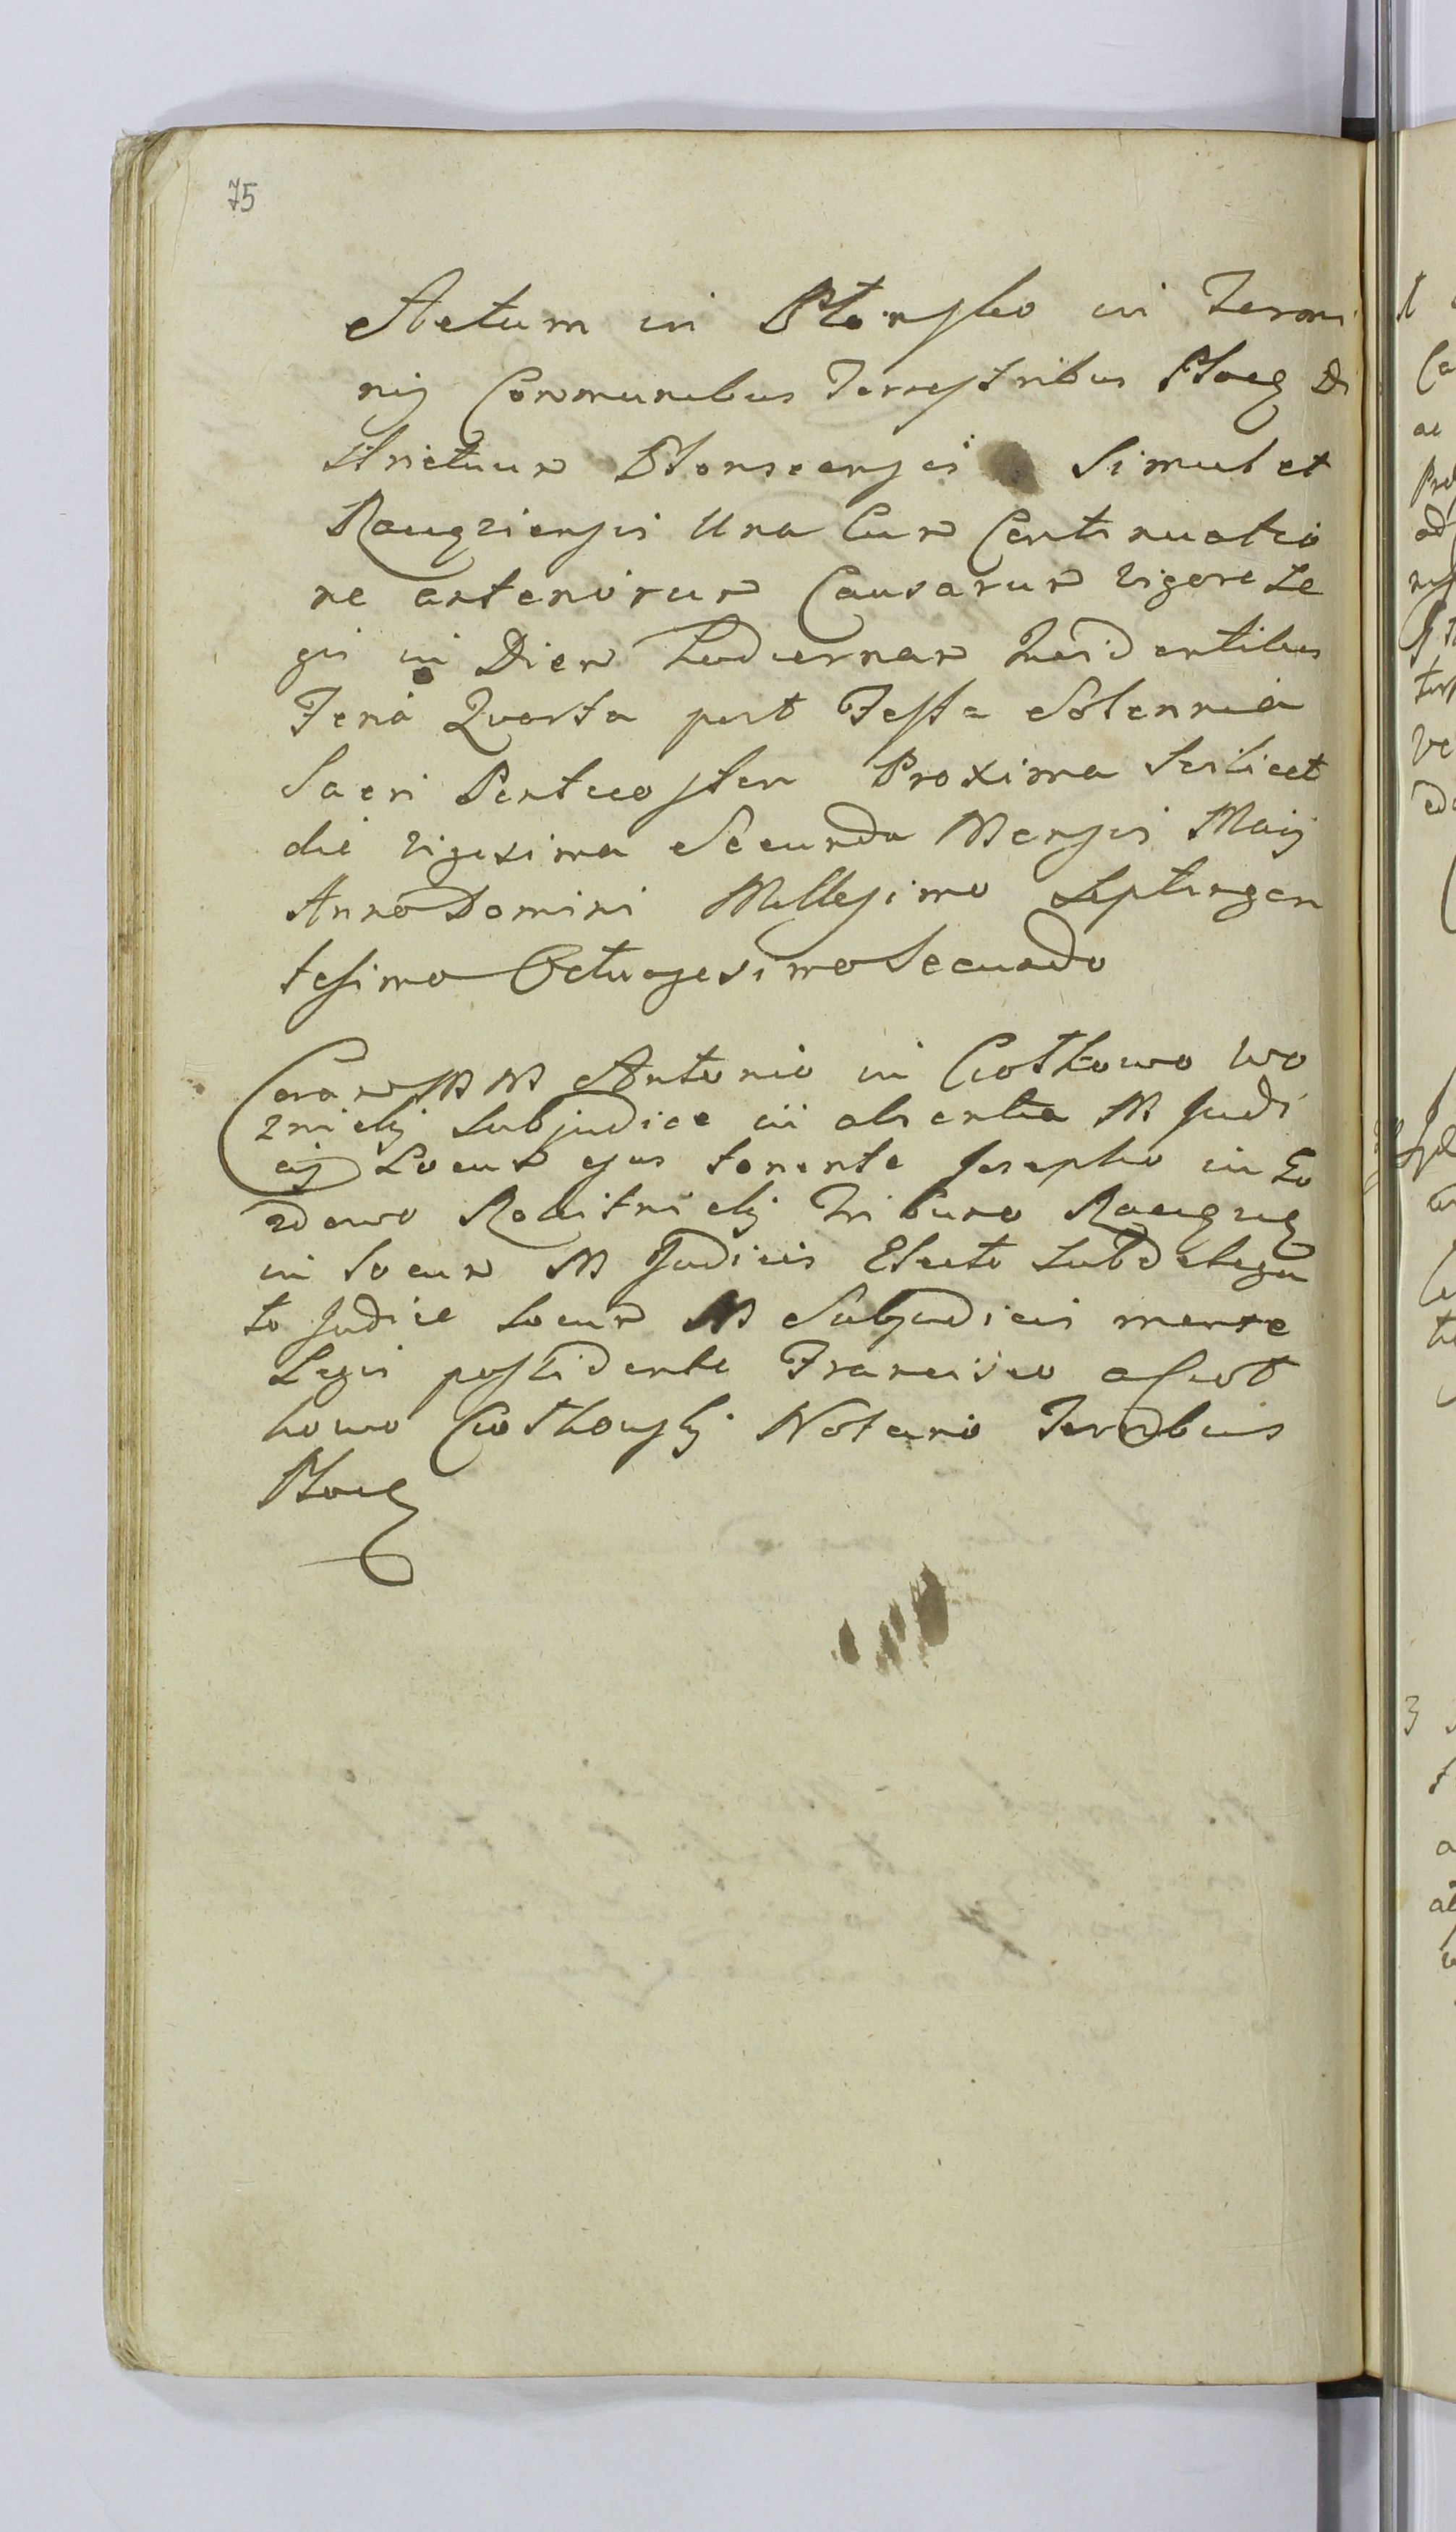 75
Actum in Płonsko in Termi
nis Communibus Terrestribus Plocen Di
strictuum Plonscensis Simul et
Raciąziensis Una Cum Continuatio
ne anteriorum Causarum vigore Le
gis in Diem Hodiernam Incidentibus
Feria Quarta post Festa Solennia
Sacri Pentecosten Proxima Scilicet
die vigesima Secunda Mensis Maij
Anno Domini Millesimo Septingen
tesimo Octuagesimo Secundo
Coram M M Antonio in Ciotkowo Wo
znicki Subjudice in absentia M Judi
cis Locum ejus tenente Josepho in
Rościszewski Tribuno Raciąz
in locum M Judicis Electo Subdelega
to Judice locum M Subjudicis mente
Legis possidente Francisco a Ciot
kowo Ciotkowski Notario Terribus
Plocen